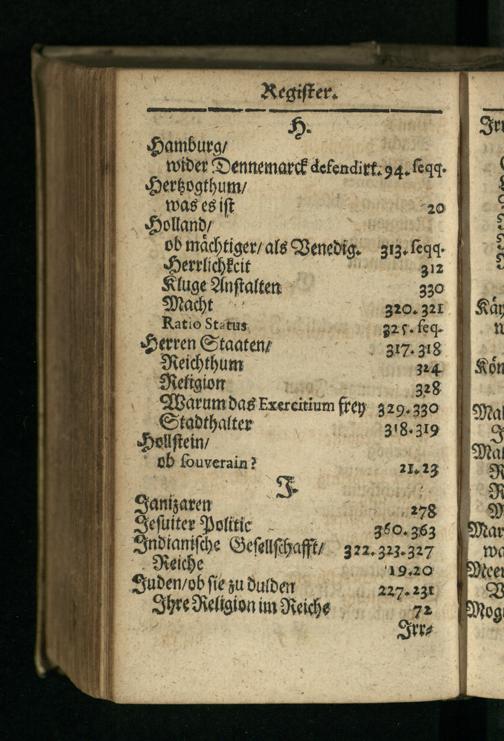 Register.
H.
Hamburg/
wider Dennemarck defendirt. 94. seqq.
Hertzogthum/
was es ist 20
Holland/
ob mächtiger/ als Venedig. 313. seqq.
Herrlichkeit 312
Kluge Anstalten 330
Macht 320. 321
Ratio Status 325. seq.
Herren Staaten/ 317. 318
Reichthum 324
Religion 328
Warum das Exercitium frey 329. 330
Stadthalter 318. 319
Hollstein/
ob souverain? 21. 23
J.
Janizaren 278
Jesuiter Politic 360. 363
Indianische Gesellschafft/ 322. 323. 327
Reiche 19. 20
Juden/ ob sie zu dulden 227. 231
Ihre Religion im Reiche 72
Irr⸗